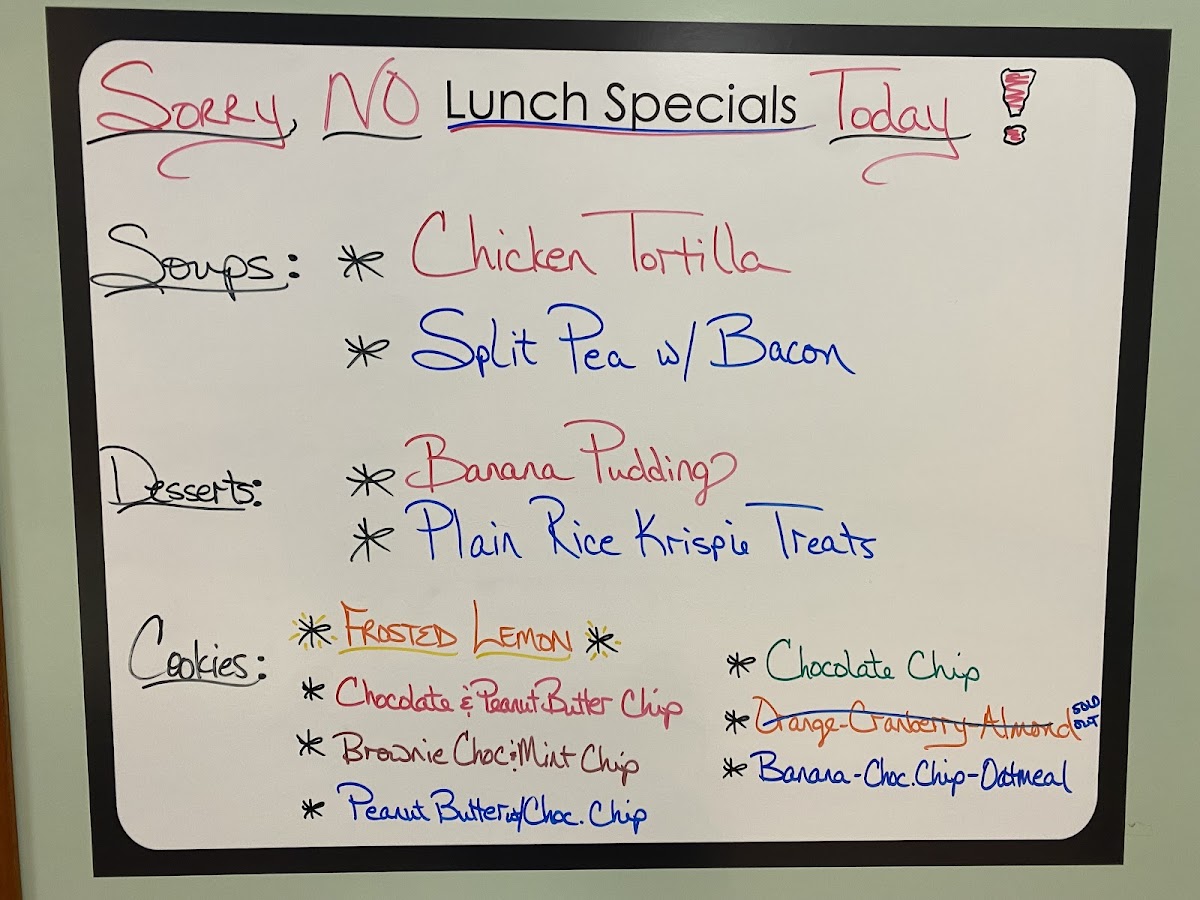 SORRY, NO Lunch Specials Today!
Soups: * Chicken Tortilla
* Split Pea w/ Bacon
Desserts: * Banana Pudding
* Plain Rice Krispie Treats
Cookies: * FROSTED LEMON *
* Chocolate & Peanut Butter Chip
* Brownie Choc & Mint Chip
* Peanut Butter w/ Choc. Chip
* Chocolate Chip
* Orange-Cranberry-Almond SOLD OUT
* Banana-Choc. Chip-Oatmeal